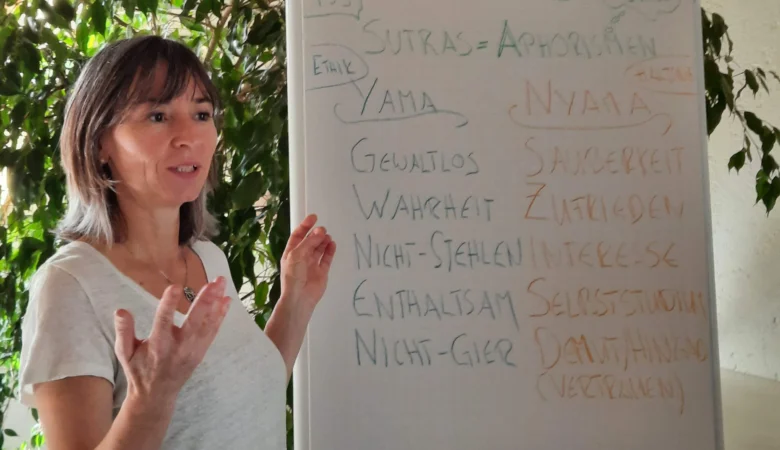 SUTRAS = APHORISMEN
ETHIK
YAMA NYAMA
GEWALTLOS SAUBERKEIT
WAHRHEIT ZUFRIEDEN
NICHT-STEHLEN INTERESSE
ENTHALTSAM SELBSTSTUDIUM
NICHT-GIER DEMUT/HINGABE
(VERTRAUEN)